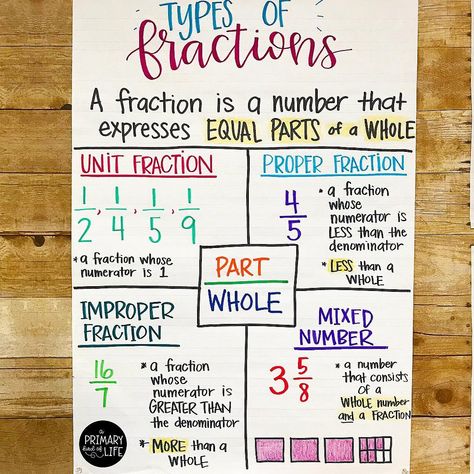 TYPES OF
fractions
A fraction is a number that
expresses EQUAL PARTS of a WHOLE
UNIT FRACTION
1/2, 1/4, 1/5, 1/9
* a fraction whose
numerator is 1
PROPER FRACTION
4/5
* a
fraction
whose
numerator is
LESS than the
denominator
* LESS than a
WHOLE
PART
WHOLE
IMPROPER
FRACTION
16/7
* a fraction
whose
numerator is
GREATER THAN
the denominator
* MORE than a
WHOLE
MIXED
NUMBER
3 5/8
* a number
that consists
of a
WHOLE number
and a FRACTION
a
PRIMARY
kind of
LIFE